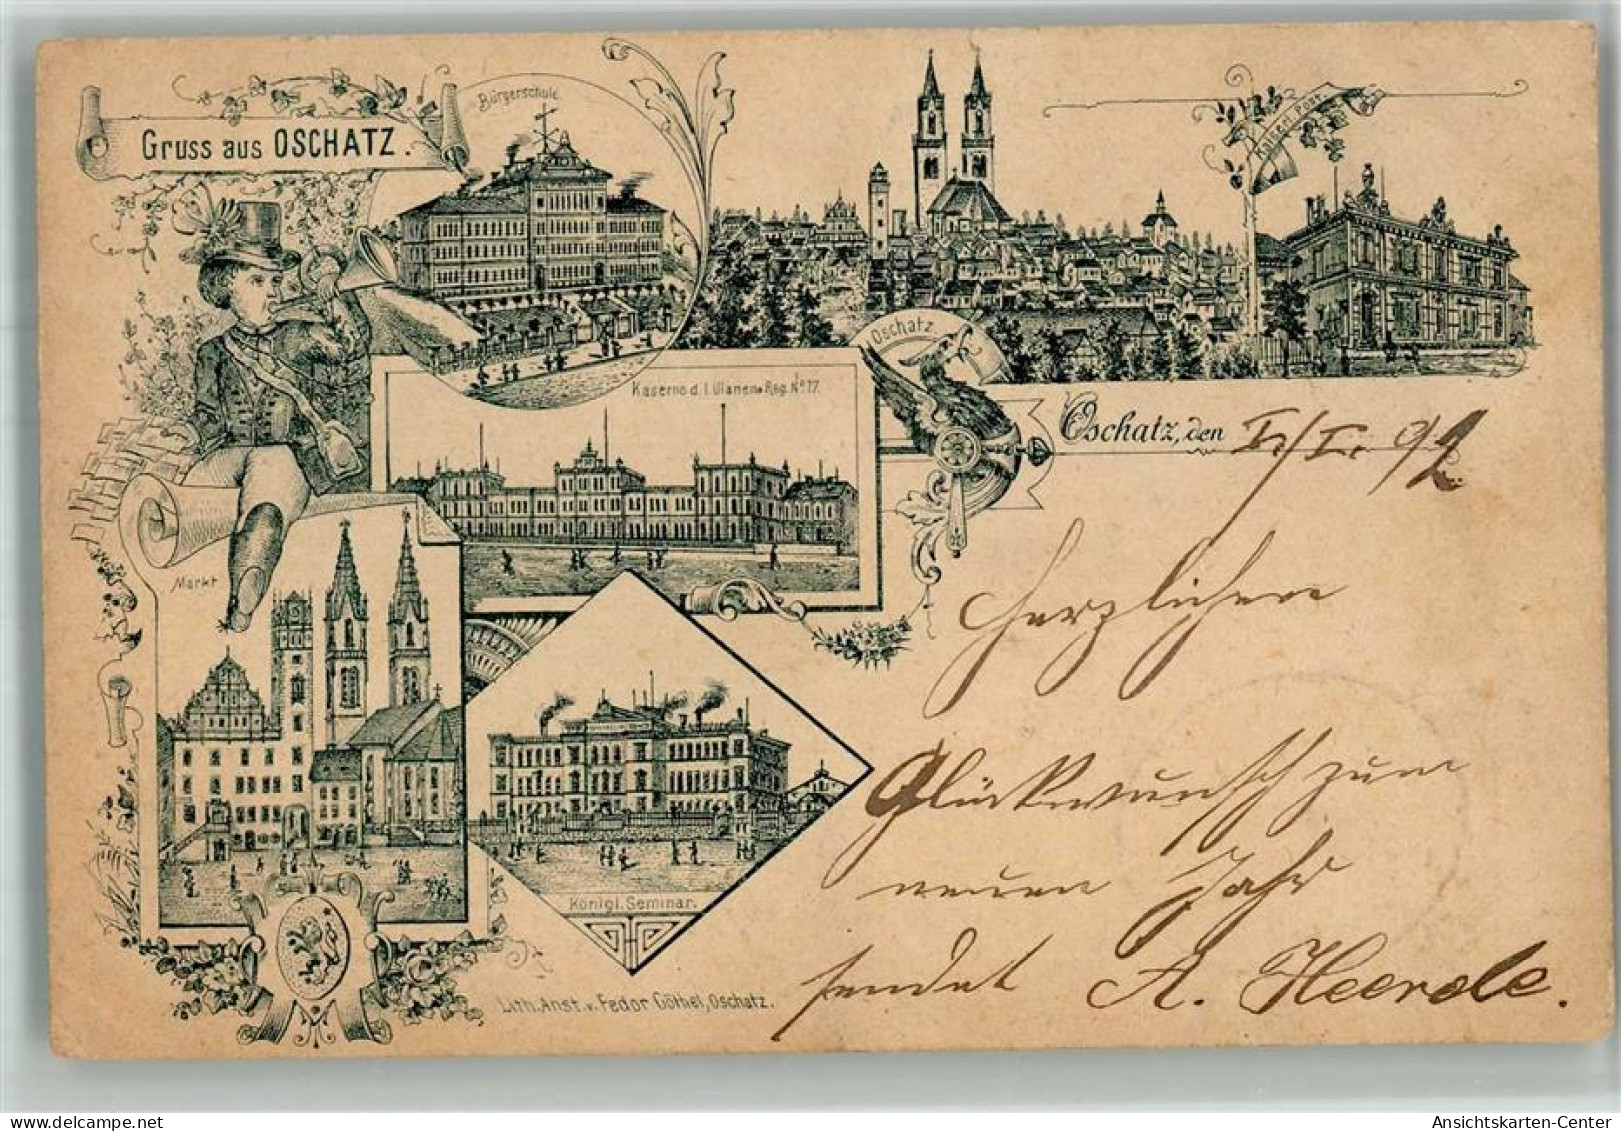 Gruss aus OSCHATZ.
Bürgerschule
Kaiserl. Post.
Oschatz
Kaserne d. I. Ulanen-Reg. No 17.
Oschatz, den I/I. 92
Markt
Herzlichen
Glückwunsch zum
neuen Jahr
sendet A. Heerde.
Königl. Seminar.
Lith. Anst. v. Fedor Göthel, Oschatz.
Ansichtskarten-Center